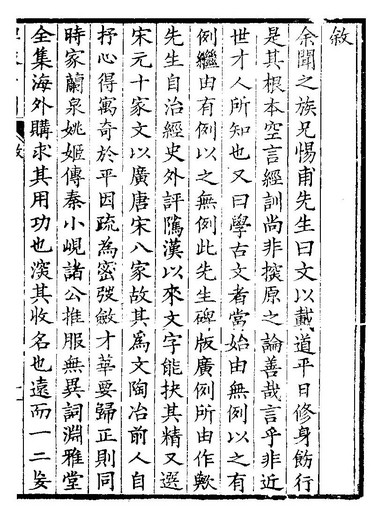 敘
余聞之族兄惕甫先生曰文以載道平日修身飭行
是其根本空言經訓尚非探原之論善哉言乎非近
世才人所知也又曰學古文者當始由無例以之有
例繼由有例以之無例此先生碑版廣例所由作歟
先生自治經史外評隲漢以來文字能抉其精又選
宋元十家文以廣唐宋八家故其為文陶冶前人自
抒心得寓奇於平因疏為密弢斂才華要歸正則同
時家蘭泉姚姬傳秦小峴諸公推服無異詞淵雅堂
全集海外購求其用功也深其收名也遠而一二妄